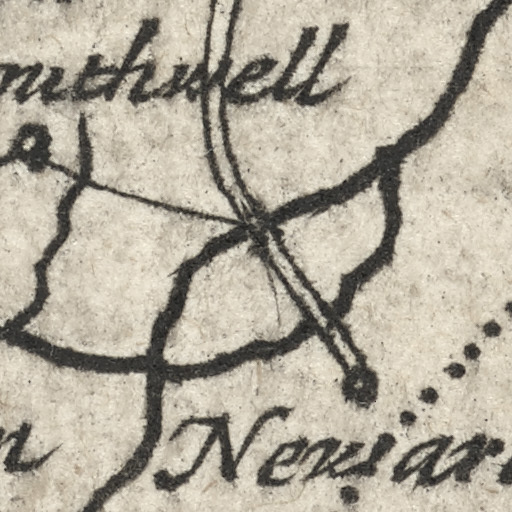 outhwell
n Newar